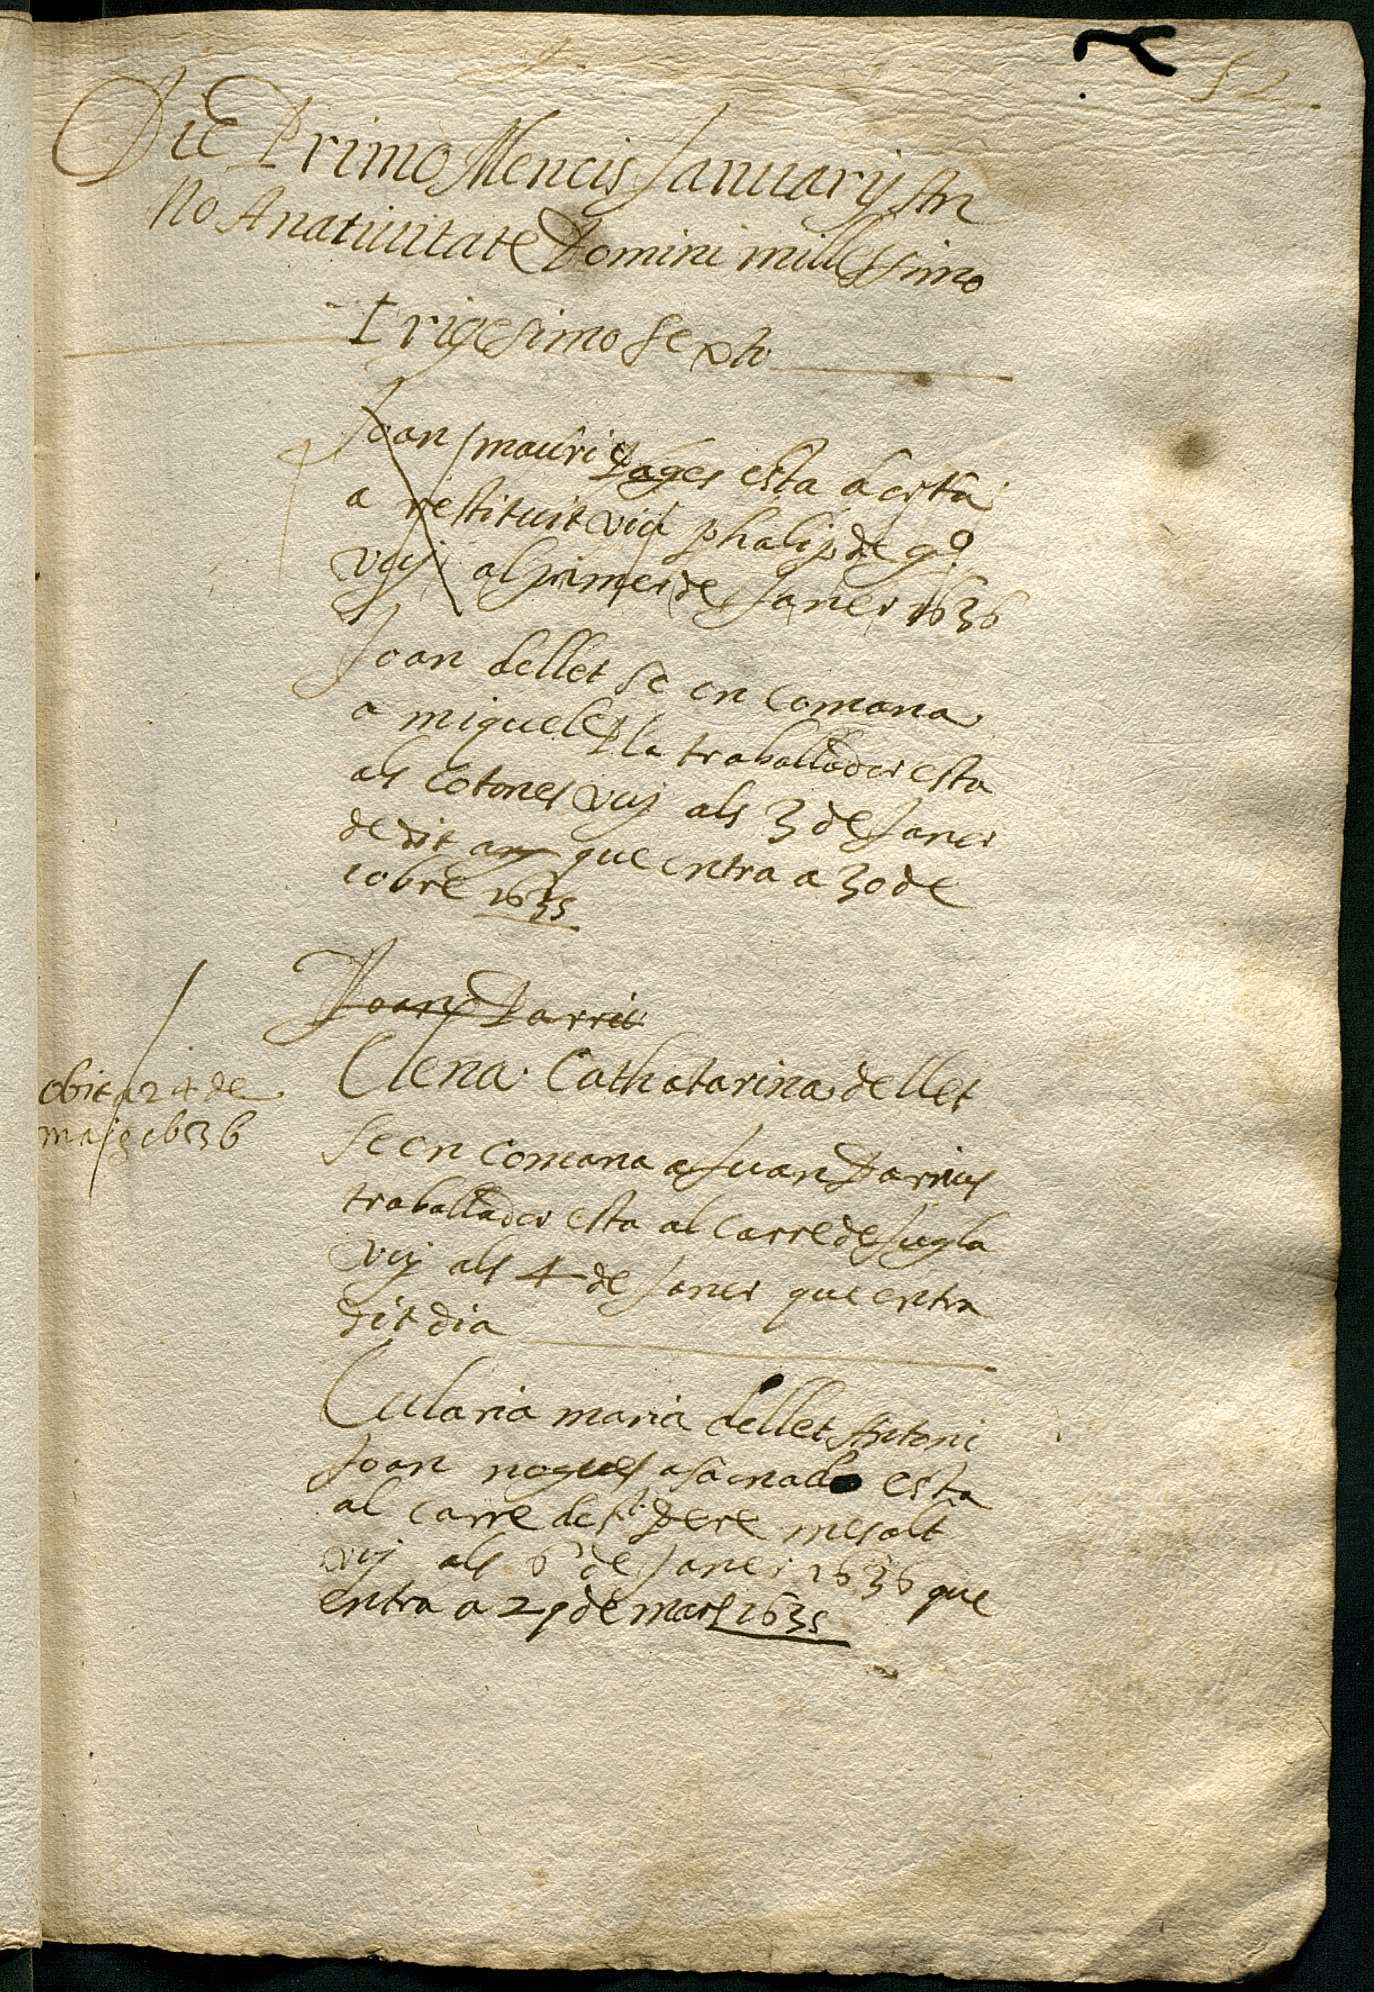 52
Die Primo Mencis Januarij An
no Anativitate Domini millessimo
trigesimo sexto
Joan mauri Pages esta
a restituit phalip de
vuy al primer de Janer 1636
Joan dellet se en comana
a miquel Pla traballador esta
als cotones vuy als 3 de Janer
de dit any que entra a 30 de
10bre 1635
Joan Darriu
obit a 24 de
maig 1636
Elena Cathatarina dellet
se en comana a Juan Darrius
traballador esta al carre de
vuy als 4 de Janer que entra
dit dia
Eularia maria dellet Antoni
Joan nogues esta
al carre de St Pere mes alt
vuy als 6 de Janer 1636 que
entra a 29 de mars 1635